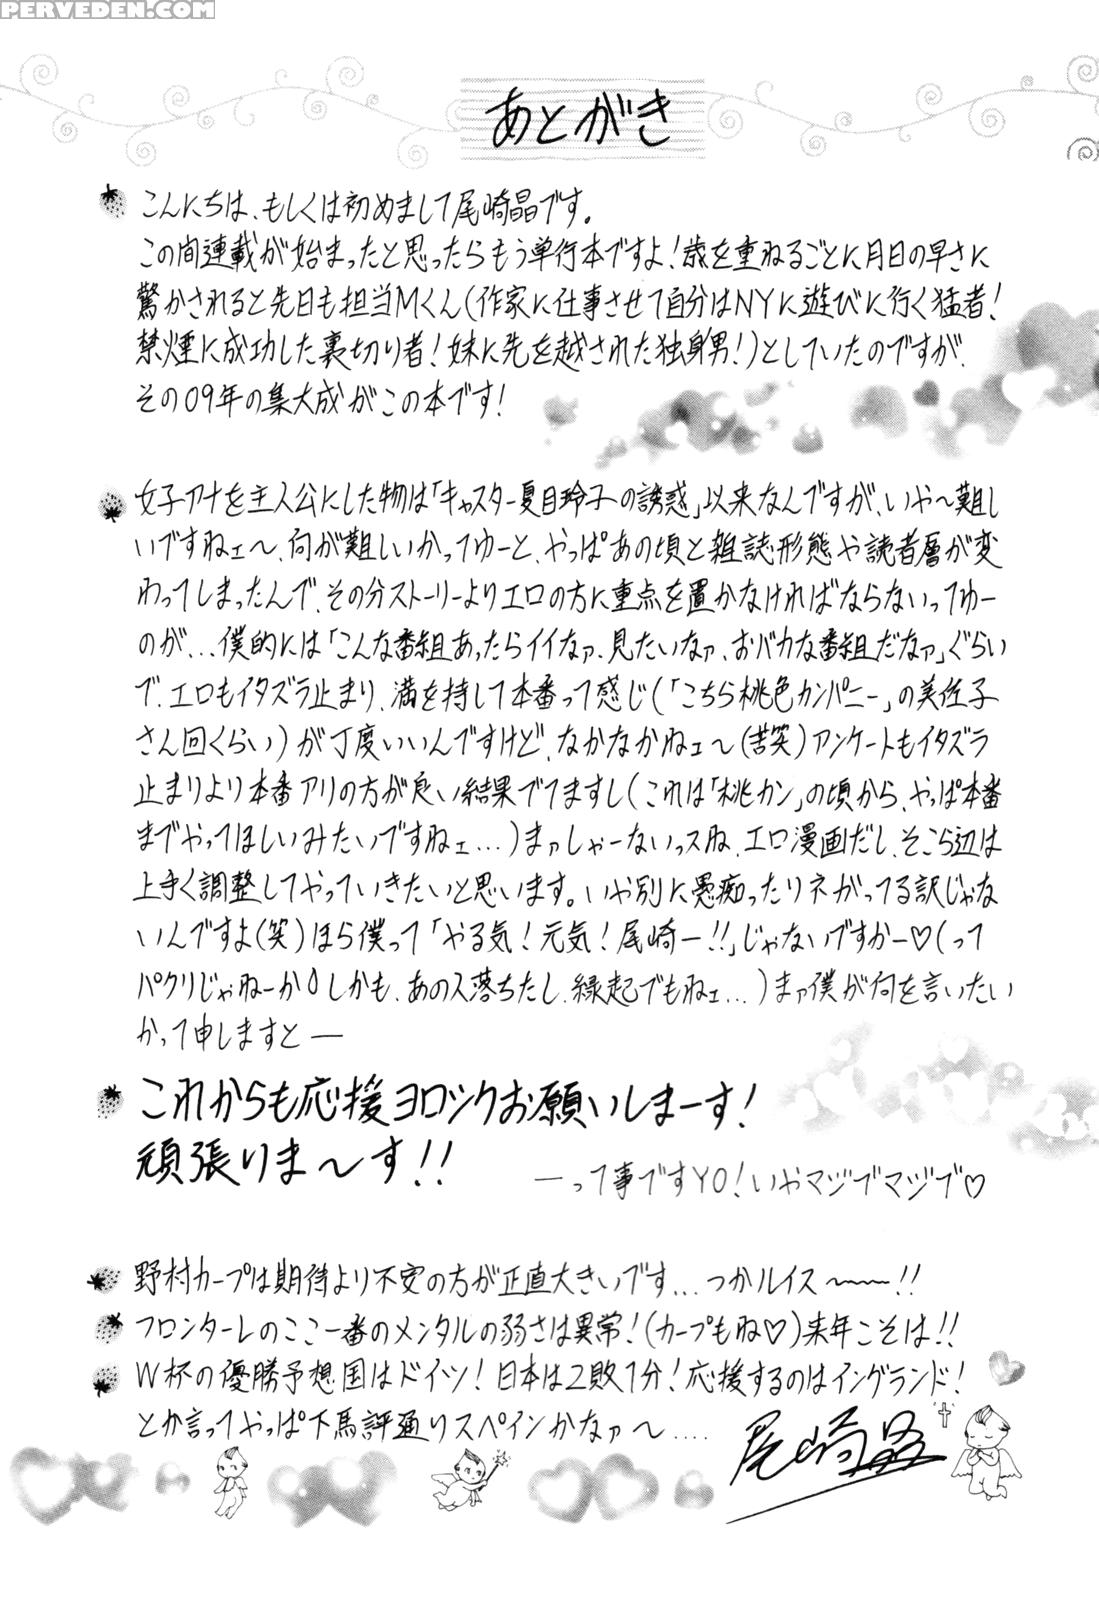 PERVEDEN.COM
あとがき
こんにちは、もしくは初めまして尾崎晶です。
この間連載が始まったと思ったらもう単行本ですよ！歳を重ねるごとに月日の早さに
驚かされると先日も担当Mくん(作家に仕事させて自分はNYに遊びに行く猛者！
禁煙に成功した裏切り者！妹に先を越された独身男！)としていたのですが、
その09年の集大成がこの本です！
女子アナを主人公にした物は「キャスター夏目玲子の誘惑」以来なんですが、いや〜難し
いですねェ〜、何が難しいかってゆーと、やっぱあの頃と雑誌形態や読者層が変
わってしまったんで、その分ストーリーよりエロの方に重点を置かなければならないってゆー
のが…僕的には「こんな番組あったらイイなァ、見たいなァ、おバカな番組だなァ」ぐらい
で、エロもイタズラ止まり、満を持して本番って感じ(「こちら桃色カンパニー」の美佐子
さん回くらい)が丁度いいんですけど、なかなかねェ〜(苦笑)アンケートもイタズラ
止まりより本番アリの方が良い結果でてますし(これは「桃カン」の頃から、やっぱ本番
までやってほしいみたいですねェ…)まァしゃーないっスね、エロ漫画だし、そこら辺は
上手く調整してやっていきたいと思います。いや別に愚痴ったりネガってる訳じゃな
いんですよ(笑)ほら僕って「やる気！元気！尾崎ー!!」じゃないですかー♡(って
パクリじゃねーか しかも、あの人落ちたし、縁起でもねェ…)まァ僕が何を言いたい
かって申しますと―
これからも応援ヨロシクお願いしまーす！
頑張りま〜す!!
―って事ですYO！いやマジでマジで♡
野村カープは期待より不安の方が正直大きいです…つかルイス〜〜!!
フロンターレのここ一番のメンタルの弱さは異常！(カープもね♡)来年こそは!!
W杯の優勝予想国はドイツ！日本は2敗1分！応援するのはイングランド！
とか言ってやっぱ下馬評通りスペインかなァ〜….
尾崎晶